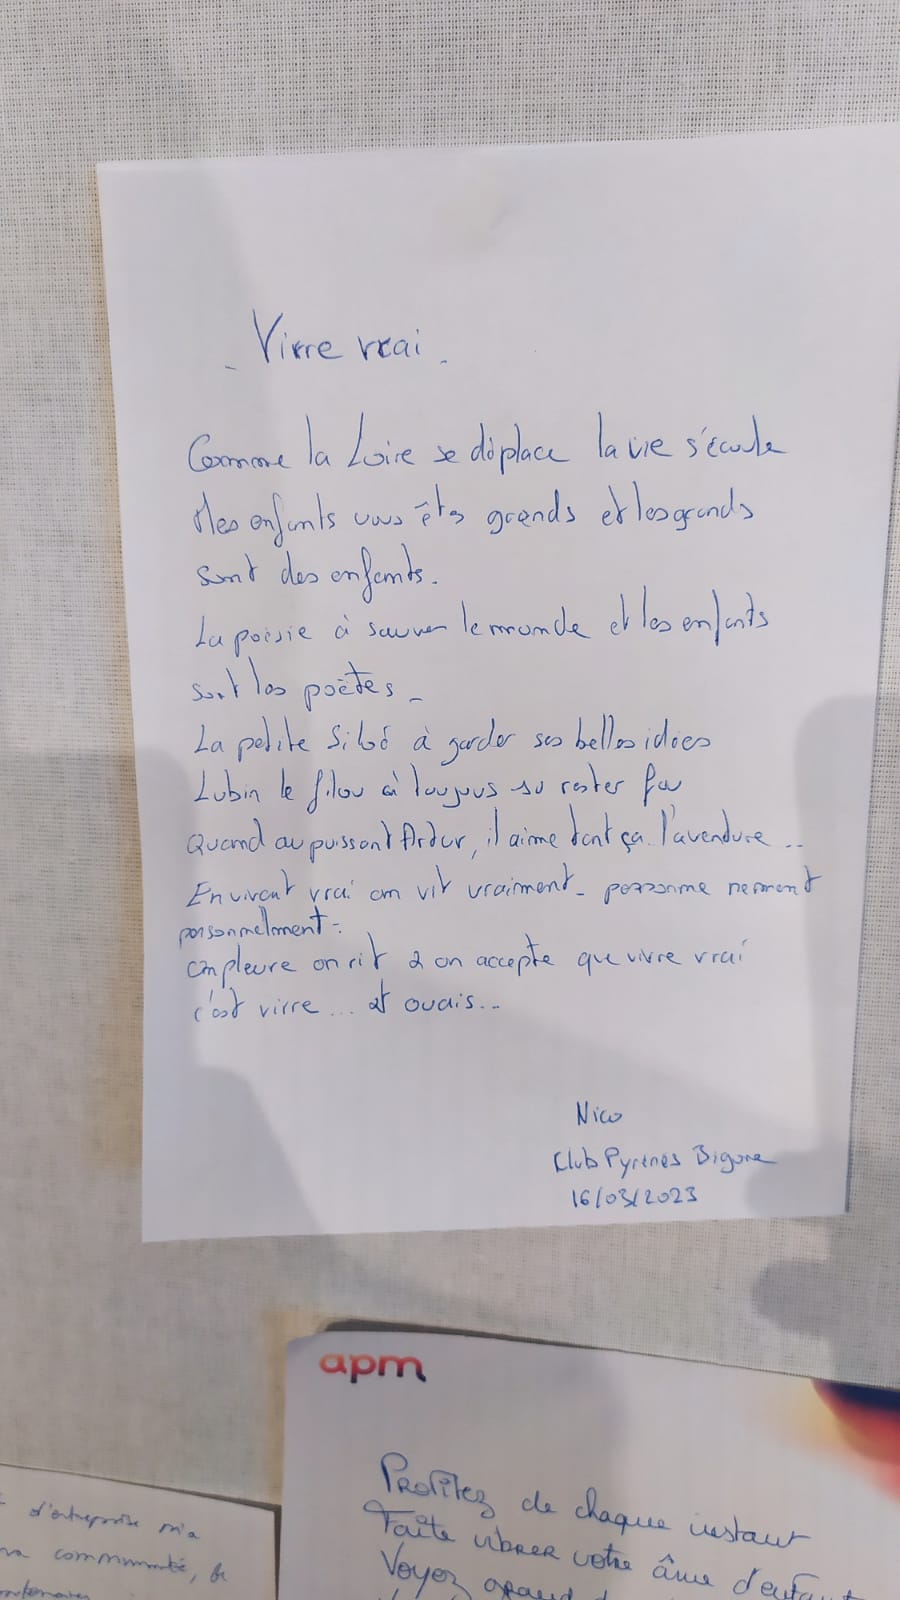 - Vivre vrai -
Comme la Loire se déplace la vie s'écoule
Mes enfants vous êtes grands et les grands
sont des enfants.
La poésie à sauver le monde et les enfants
sont les poètes -
La petite à garder ses belles idées
Lubin le filou à toujours su rester fou
Quand au puissant Artur, il aime tant ça l'aventure...
En vivant vrai on vit vraiment - personne ne ment
personnellement -
on pleure on rit & on accepte que vivre vrai
c'est vivre... et ouais...
Nico
Club Pyrénés Bigorre
16/03/2023
apm
Profitez de chaque instant
Faîte vibrer votre âme d'enfant
Voyez grand
d'entreprise m'a
communauté,